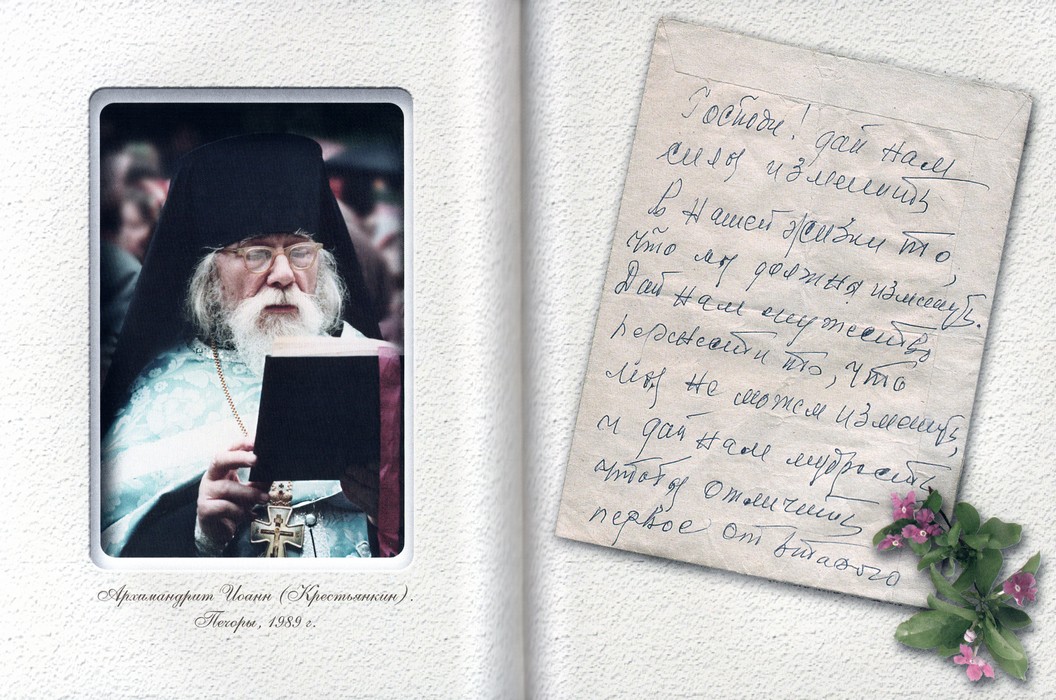 Архимандрит Иоанн (Крестьянкин).
Печоры, 1989 г.
Господи! дай нам
силы изменить
в нашей жизни то,
что мы должны изменить.
Дай нам мужество
перенести то, что
мы не можем изменить,
и дай нам мудрость
чтобы отличить
первое от второго